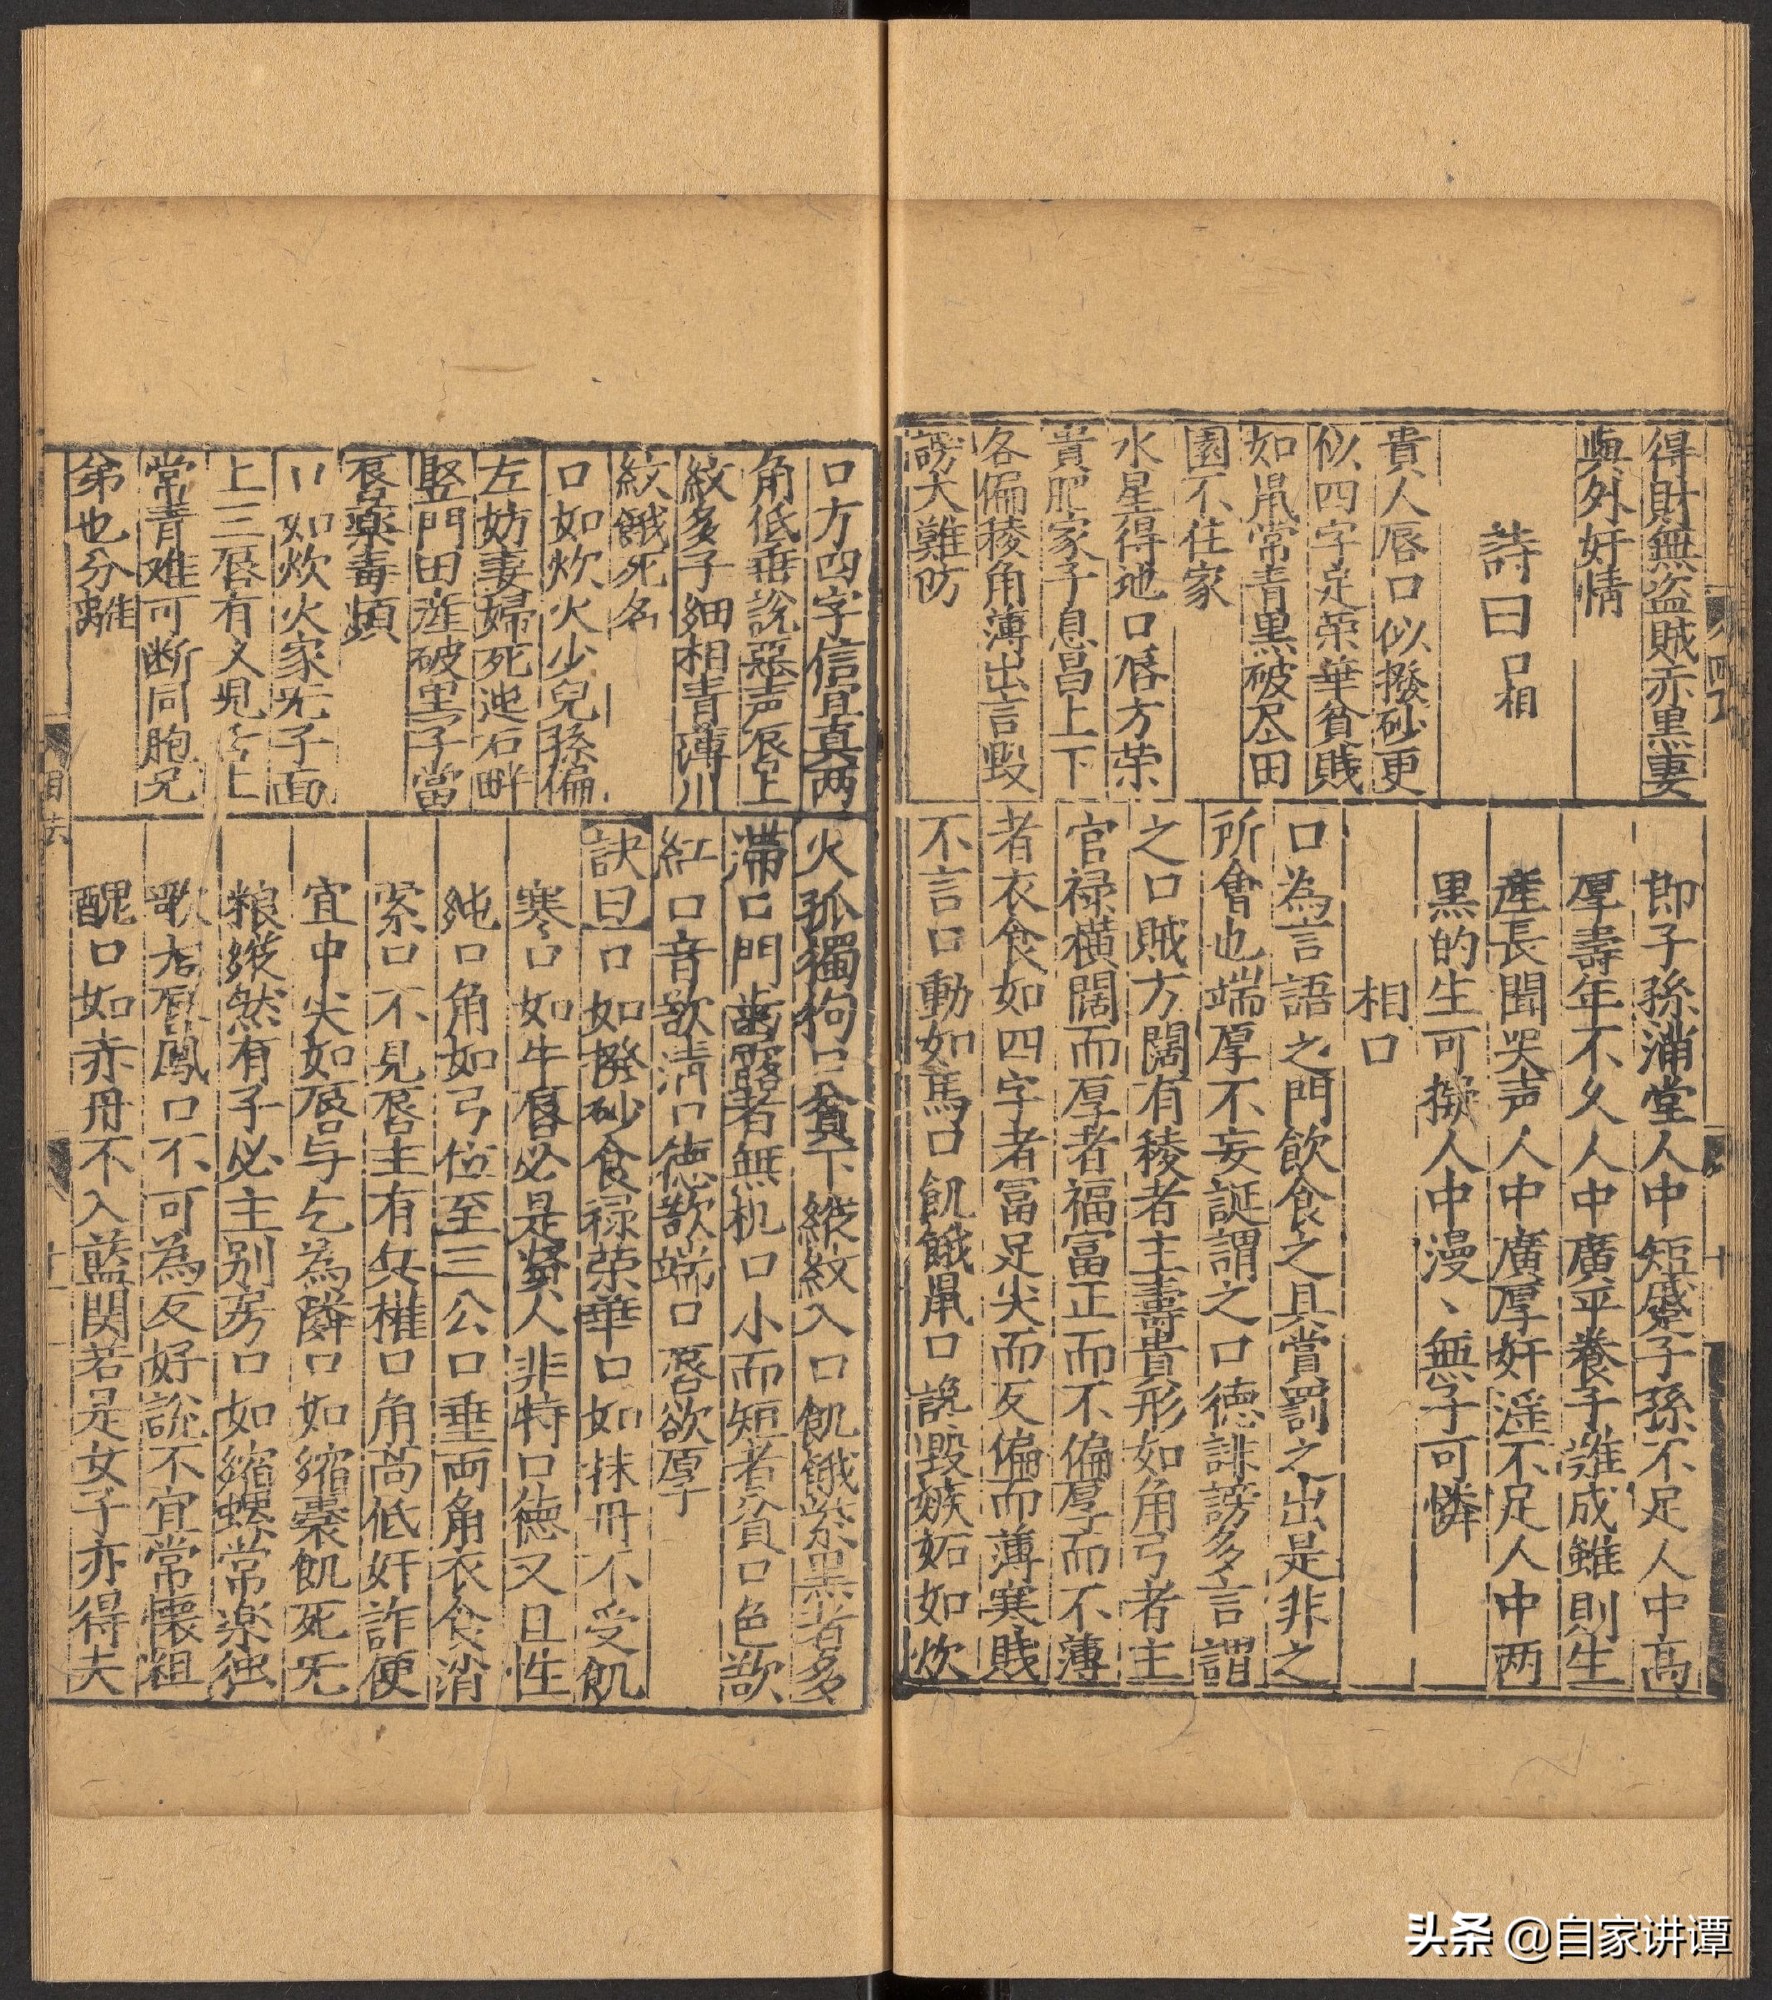 得財無盗賊赤黒妻
與外奸情
詩曰口相
貴人唇口似撥砂更
似四字足荣華貧賎
如鼠常青黒破尽田
園不住家
水星得地口唇方荣
貴肥家子息昌上下
各偏稜角薄出言毀
謗大難防
即子孫滿堂人中短蹙子孫不足人中髙
厚壽年不久人中廣平養子誰成雖則生
産長聞哭声人中廣厚奸滛不足人中两
黒的生可擬人中漫、無子可憐
相口
口為言語之門飲食之具賞罰之出是非之
所會也端厚不妄誕謂之口德誹謗多言謂
之口賊方闊有稜者主壽貴形如角弓者主
官禄橫闊而厚者福富正而不偏厚而不薄
者衣食如四字者冨足尖而反偏而薄寒賎
不言口動如馬口飢餓鼠口讒毀嫉妬如炊
口方四字信冝真两
角低垂説惡声唇上
紋多子細相青薄川
紋餓死名
口如炊火少兒孫偏
左妨妻婦死迍右畔
竪門田産破黒子當
唇藥毒煩
口如炊火家旡子面
上三唇有义児舌上
常青难可断同胞兄
弟也分離
火孤獨狗口貧下縱紋入口飢餓紫黒者多
滯口門齒露者無机口小而短者貧口色欲
紅口音欲清口德欲端口唇欲厚
訣曰口如撥砂食禄荣華口如抹丹不受飢
寒口如牛唇必是賢人非特口德又且性
純口角如弓位至三公口垂両角衣食消
索口不見唇主有兵權口角高低奸詐便
宜中尖如唇与乞為隣口如縮囊飢死旡
粮縱然有子必主别房口如縮螺常楽独
歌右唇鳳口不可為反好說不宜常懷粗
醜口如赤丹不入藍関若是女子亦得夫
头条 @自家讲谭